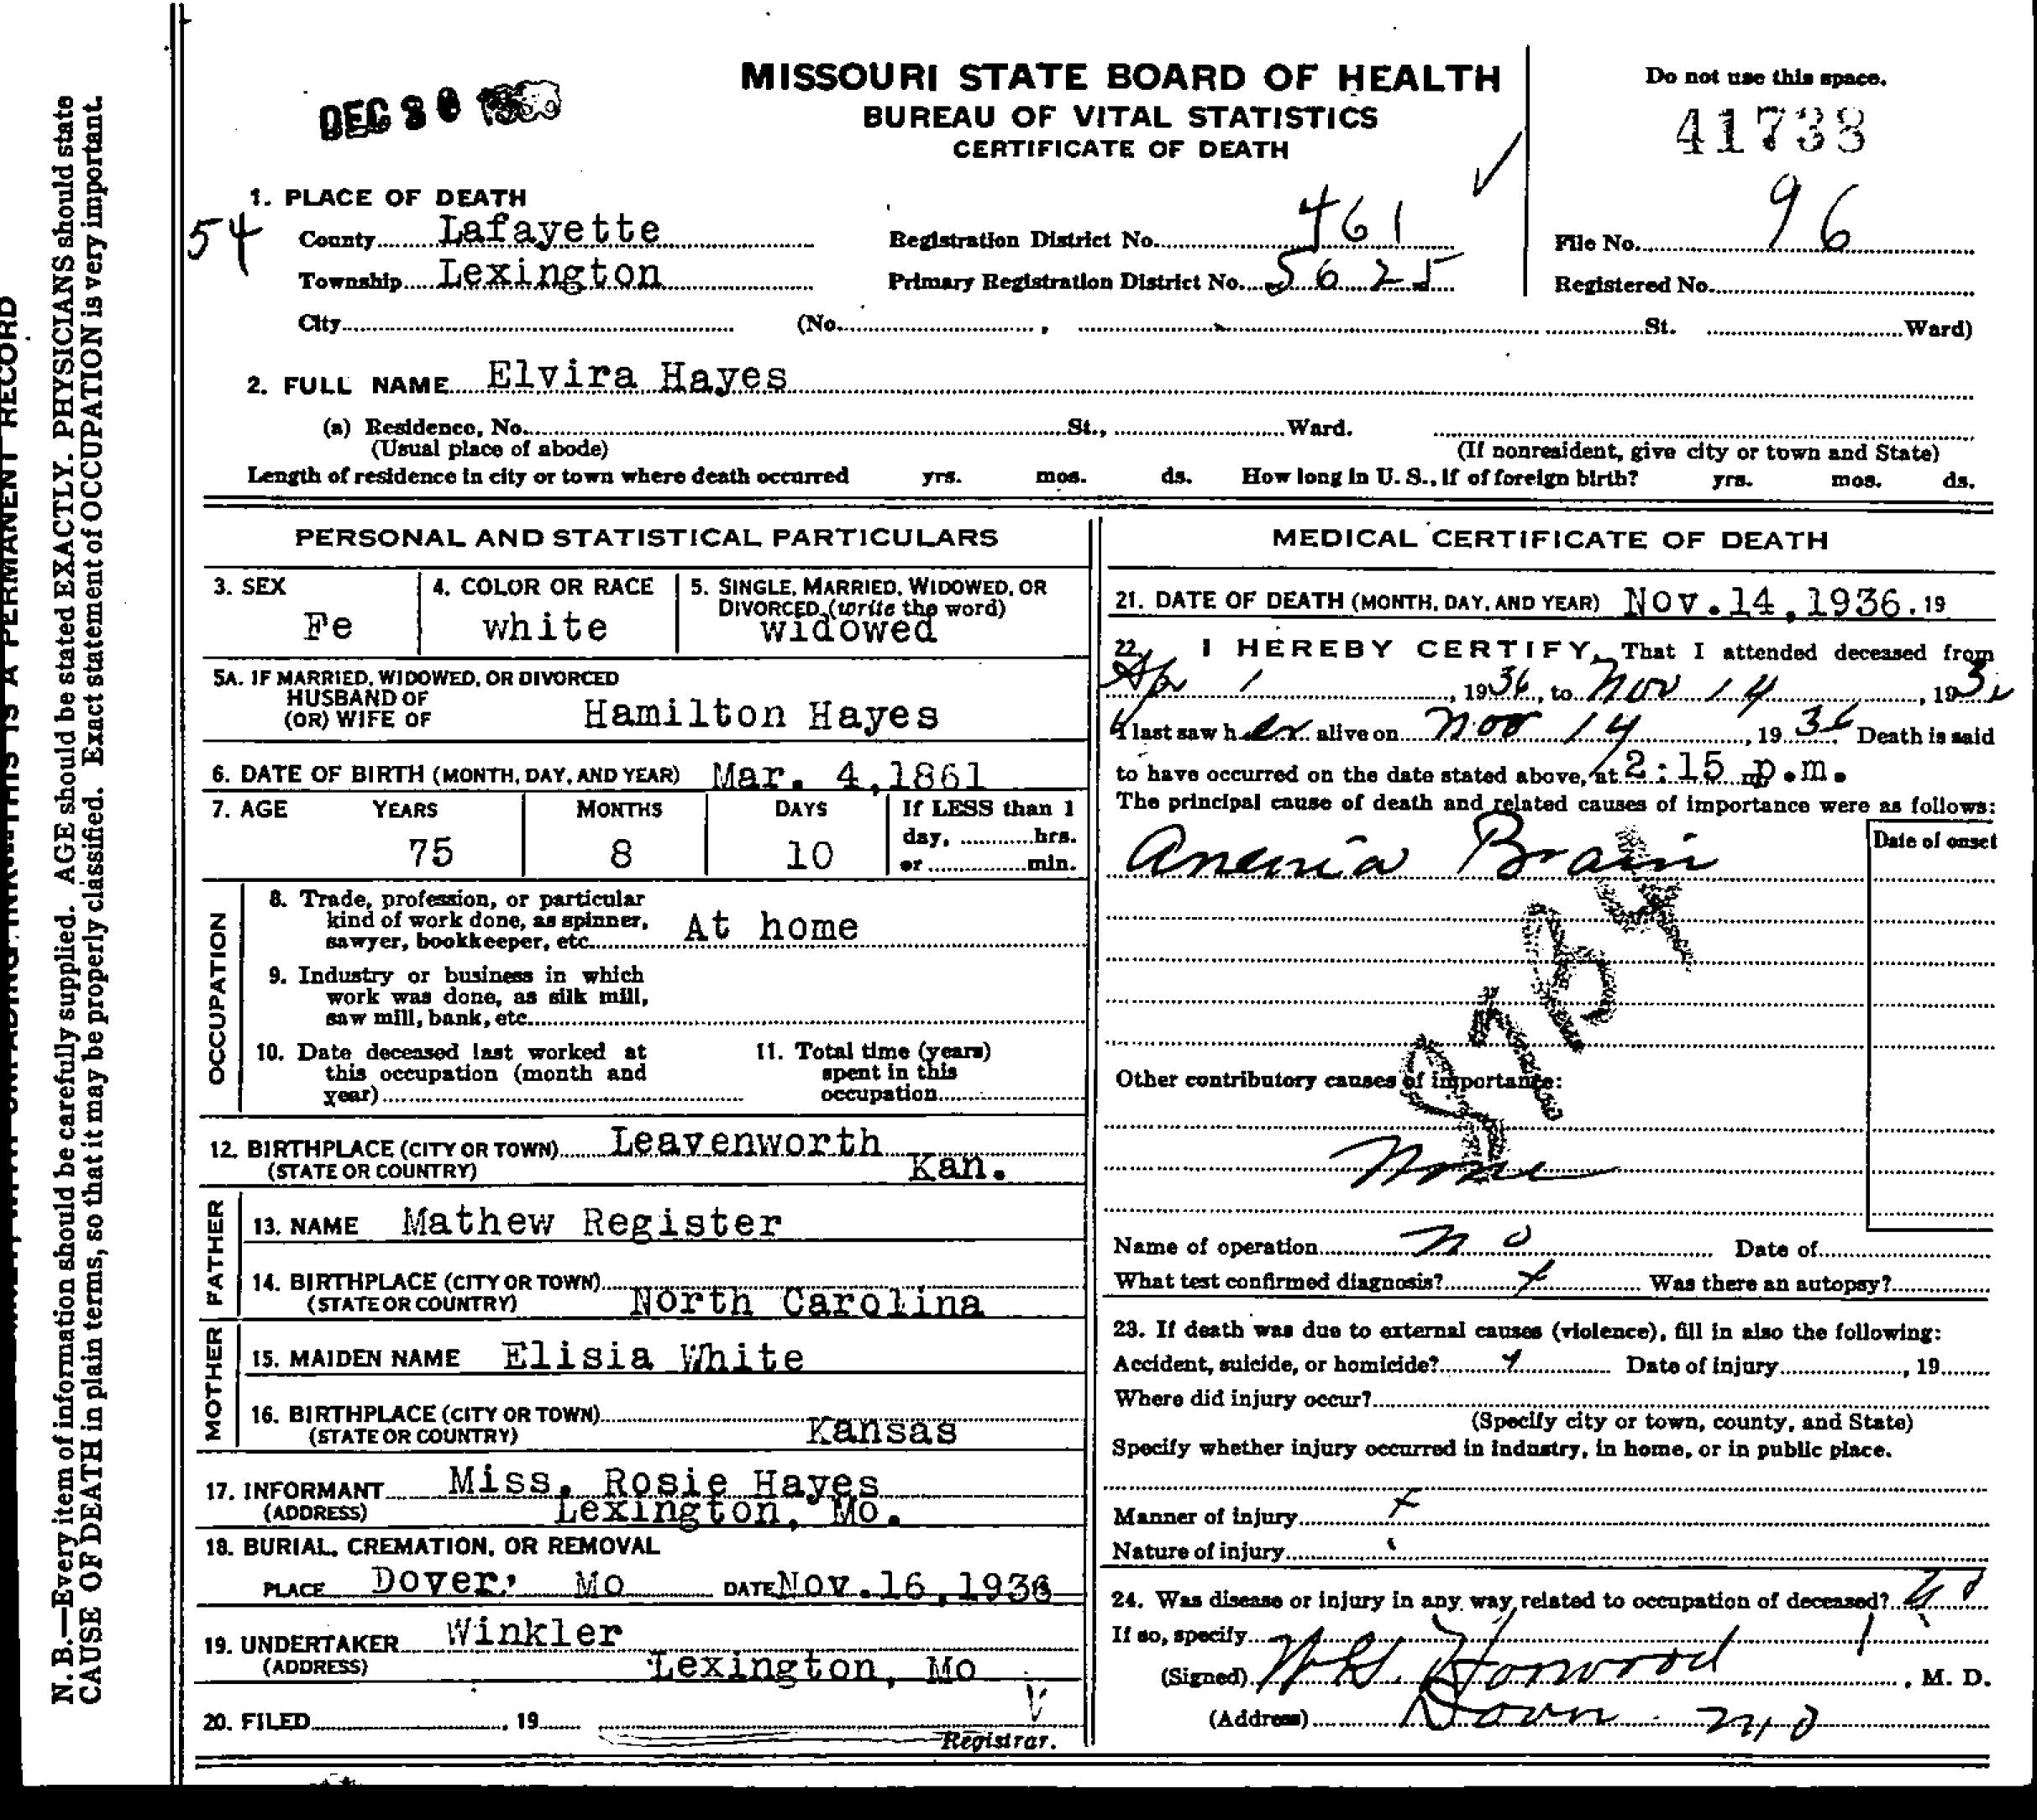 MISSOURI STATE BOARD OF HEALTH
BUREAU OF VITAL STATISTICS
CERTIFICATE OF DEATH
Do not use this space.
DEC 30
41733
1. PLACE OF DEATH
54
County Lafayette
Registration District No. 461
File No. 96
Township Lexington
Primary Registration District No. 5625
Registered No.
City (No. , St. Ward)
2. FULL NAME Elvira Hayes
(a) Residence, No. St., Ward.
(Usual place of abode) (If nonresident, give city or town and State)
Length of residence in city or town where death occurred yrs. mos. ds. How long in U. S., if of foreign birth? yrs. mos. ds.
PERSONAL AND STATISTICAL PARTICULARS
3. SEX
Fe
4. COLOR OR RACE
white
5. SINGLE, MARRIED, WIDOWED, OR
DIVORCED (write the word)
widowed
5A. IF MARRIED, WIDOWED, OR DIVORCED
HUSBAND OF
(OR) WIFE OF Hamilton Hayes
6. DATE OF BIRTH (MONTH, DAY, AND YEAR) Mar. 4,1861
7. AGE YEARS MONTHS DAYS If LESS than 1
day, hrs.
75 8 10
or min.
OCCUPATION
8. Trade, profession, or particular
kind of work done, as spinner,
sawyer, bookkeeper, etc. At home
9. Industry or business in which
work was done, as silk mill,
saw mill, bank, etc.
10. Date deceased last worked at
this occupation (month and
year)
11. Total time (years)
spent in this
occupation
12. BIRTHPLACE (CITY OR TOWN) Leavenworth
(STATE OR COUNTRY) Kan.
FATHER
13. NAME Mathew Register
14. BIRTHPLACE (CITY OR TOWN)
(STATE OR COUNTRY) North Carolina
MOTHER
15. MAIDEN NAME Elisia White
16. BIRTHPLACE (CITY OR TOWN)
(STATE OR COUNTRY) Kansas
17. INFORMANT Miss. Rosie Hayes
(ADDRESS) Lexington, Mo.
18. BURIAL, CREMATION, OR REMOVAL
PLACE Dover, Mo DATE Nov.16,1936
19. UNDERTAKER Winkler
(ADDRESS) Lexington, Mo
20. FILED , 19
Registrar.
MEDICAL CERTIFICATE OF DEATH
21. DATE OF DEATH (MONTH, DAY, AND YEAR) Nov.14,1936. 19
22. I HEREBY CERTIFY, That I attended deceased from
Ap 1, 1936, to Nov 14, 193
I last saw her alive on Nov 14, 1936 Death is said
to have occurred on the date stated above, at 2:15 p.m.
The principal cause of death and related causes of importance were as follows:
Date of onset
Anemia Brain
Other contributory causes of importance:
None
Name of operation no Date of
What test confirmed diagnosis? x Was there an autopsy?
23. If death was due to external causes (violence), fill in also the following:
Accident, suicide, or homicide? Date of injury , 19
Where did injury occur?
(Specify city or town, county, and State)
Specify whether injury occurred in industry, in home, or in public place.
Manner of injury x
Nature of injury
24. Was disease or injury in any way related to occupation of deceased?
If so, specify
(Signed) Horwood, M. D.
(Address) Dover Mo
N. B.—Every item of information should be carefully supplied. AGE should be stated EXACTLY. PHYSICIANS should state
CAUSE OF DEATH in plain terms, so that it may be properly classified. Exact statement of OCCUPATION is very important.
THIS IS A PERMANENT RECORD